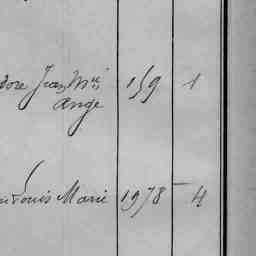 Jean Mie 159 1
Ange
Louis Marie 1978 4